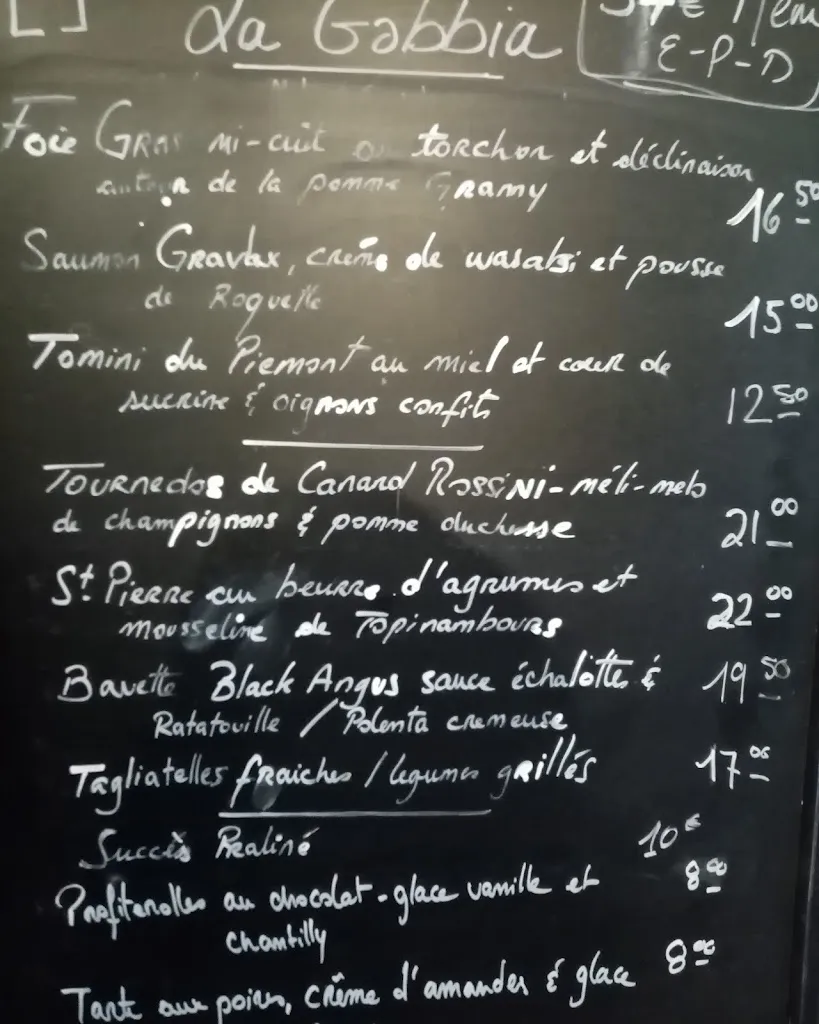 La Gabbia
E-P-D
Foie Gras mi-cuit au torchon et déclinaison
autour de la pomme Gramy
16 50
Saumon Gravlax, crème de wasabi et pousse
de Roquette
15 00
Tomini du Piemont au miel et cœur de
sucrine & oignons confits
12 50
Tournedos de Canard Rossini-méli-melo
de champignons & pomme duchesse
21 00
St Pierre au beurre d'agrumes et
mousseline de Topinambours
22 00
Bavette Black Angus sauce échalotte &
19 50
Ratatouille / Polenta cremeuse
Tagliatelles fraiches / legumes grillés
17 00
Succès Praliné
10 €
Profiterolles au chocolat-glace vanille et
8 00
Chantilly
Tarte aux poires, crème d'amandes & glace
8 00